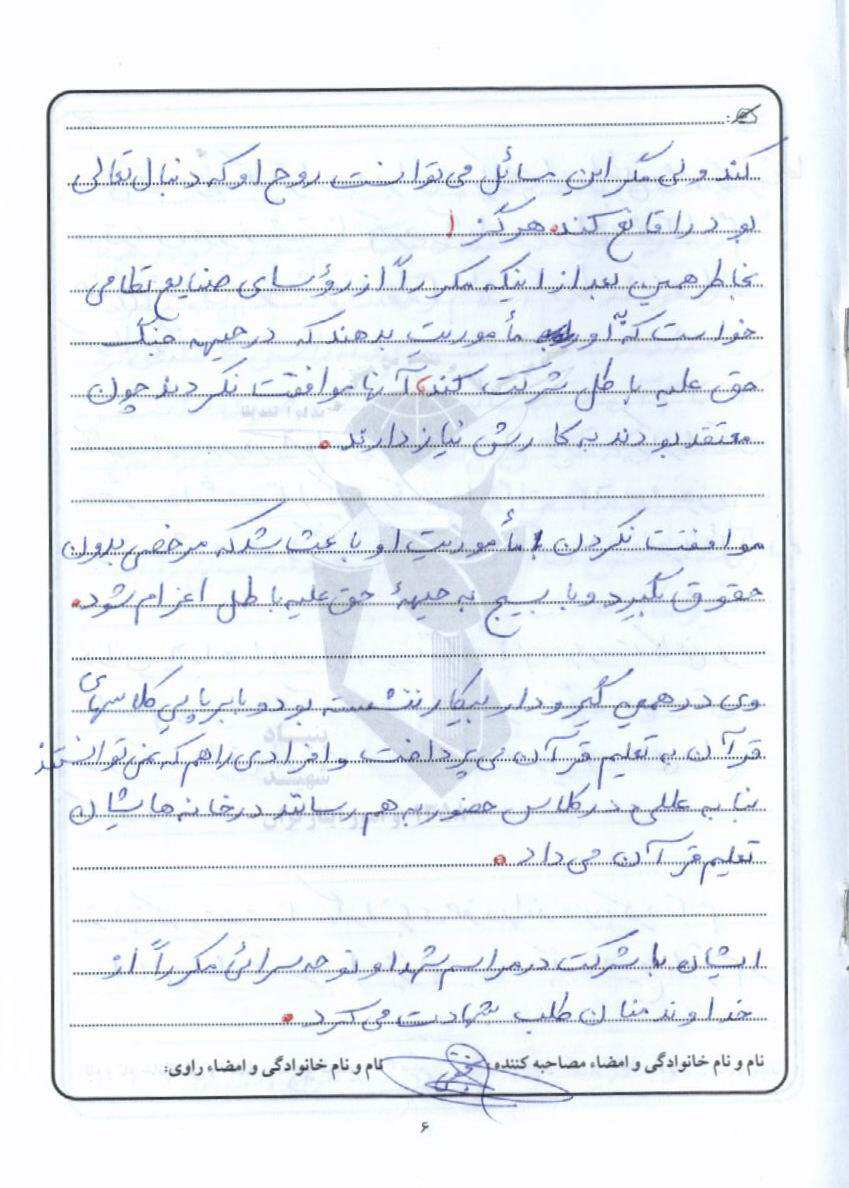 کند ولی مگر این مسائل می‌توانست روح او که دنبال تعالی
بود را قانع کند. هرگز !
بخاطر همین بعد از اینکه مکرراً از رؤسای صنایع نظامی
خواست که به او مأموریت بدهند که در جبهه جنگ
حق علیه باطل شرکت کند، آنها موافقت نکردند چون
معتقد بودند به کارش نیاز دارند .
موافقت نکردن با مأموریت او باعث شد که مرخصی بدون
حقوق بگیرد و با بسیج به جبههٔ حق علیه باطل اعزام شود .
وی در همین گیر و دار بیکار ننشسته بود و با برپایی کلاسهای
قرآن به تعلیم قرآن می پرداخت و افرادی را هم که نمی توانستند
بنا به عللی در کلاس حضور به هم رسانند در خانه هاشان
تعلیم قرآن می داد .
ایشان با شرکت در مراسم شهدا و نوحه سرائی مکرراً از
خداوند منان طلب شهادت می کرد .
نام و نام خانوادگی و امضاء مصاحبه کننده: نام و نام خانوادگی و امضاء راوی:
۶